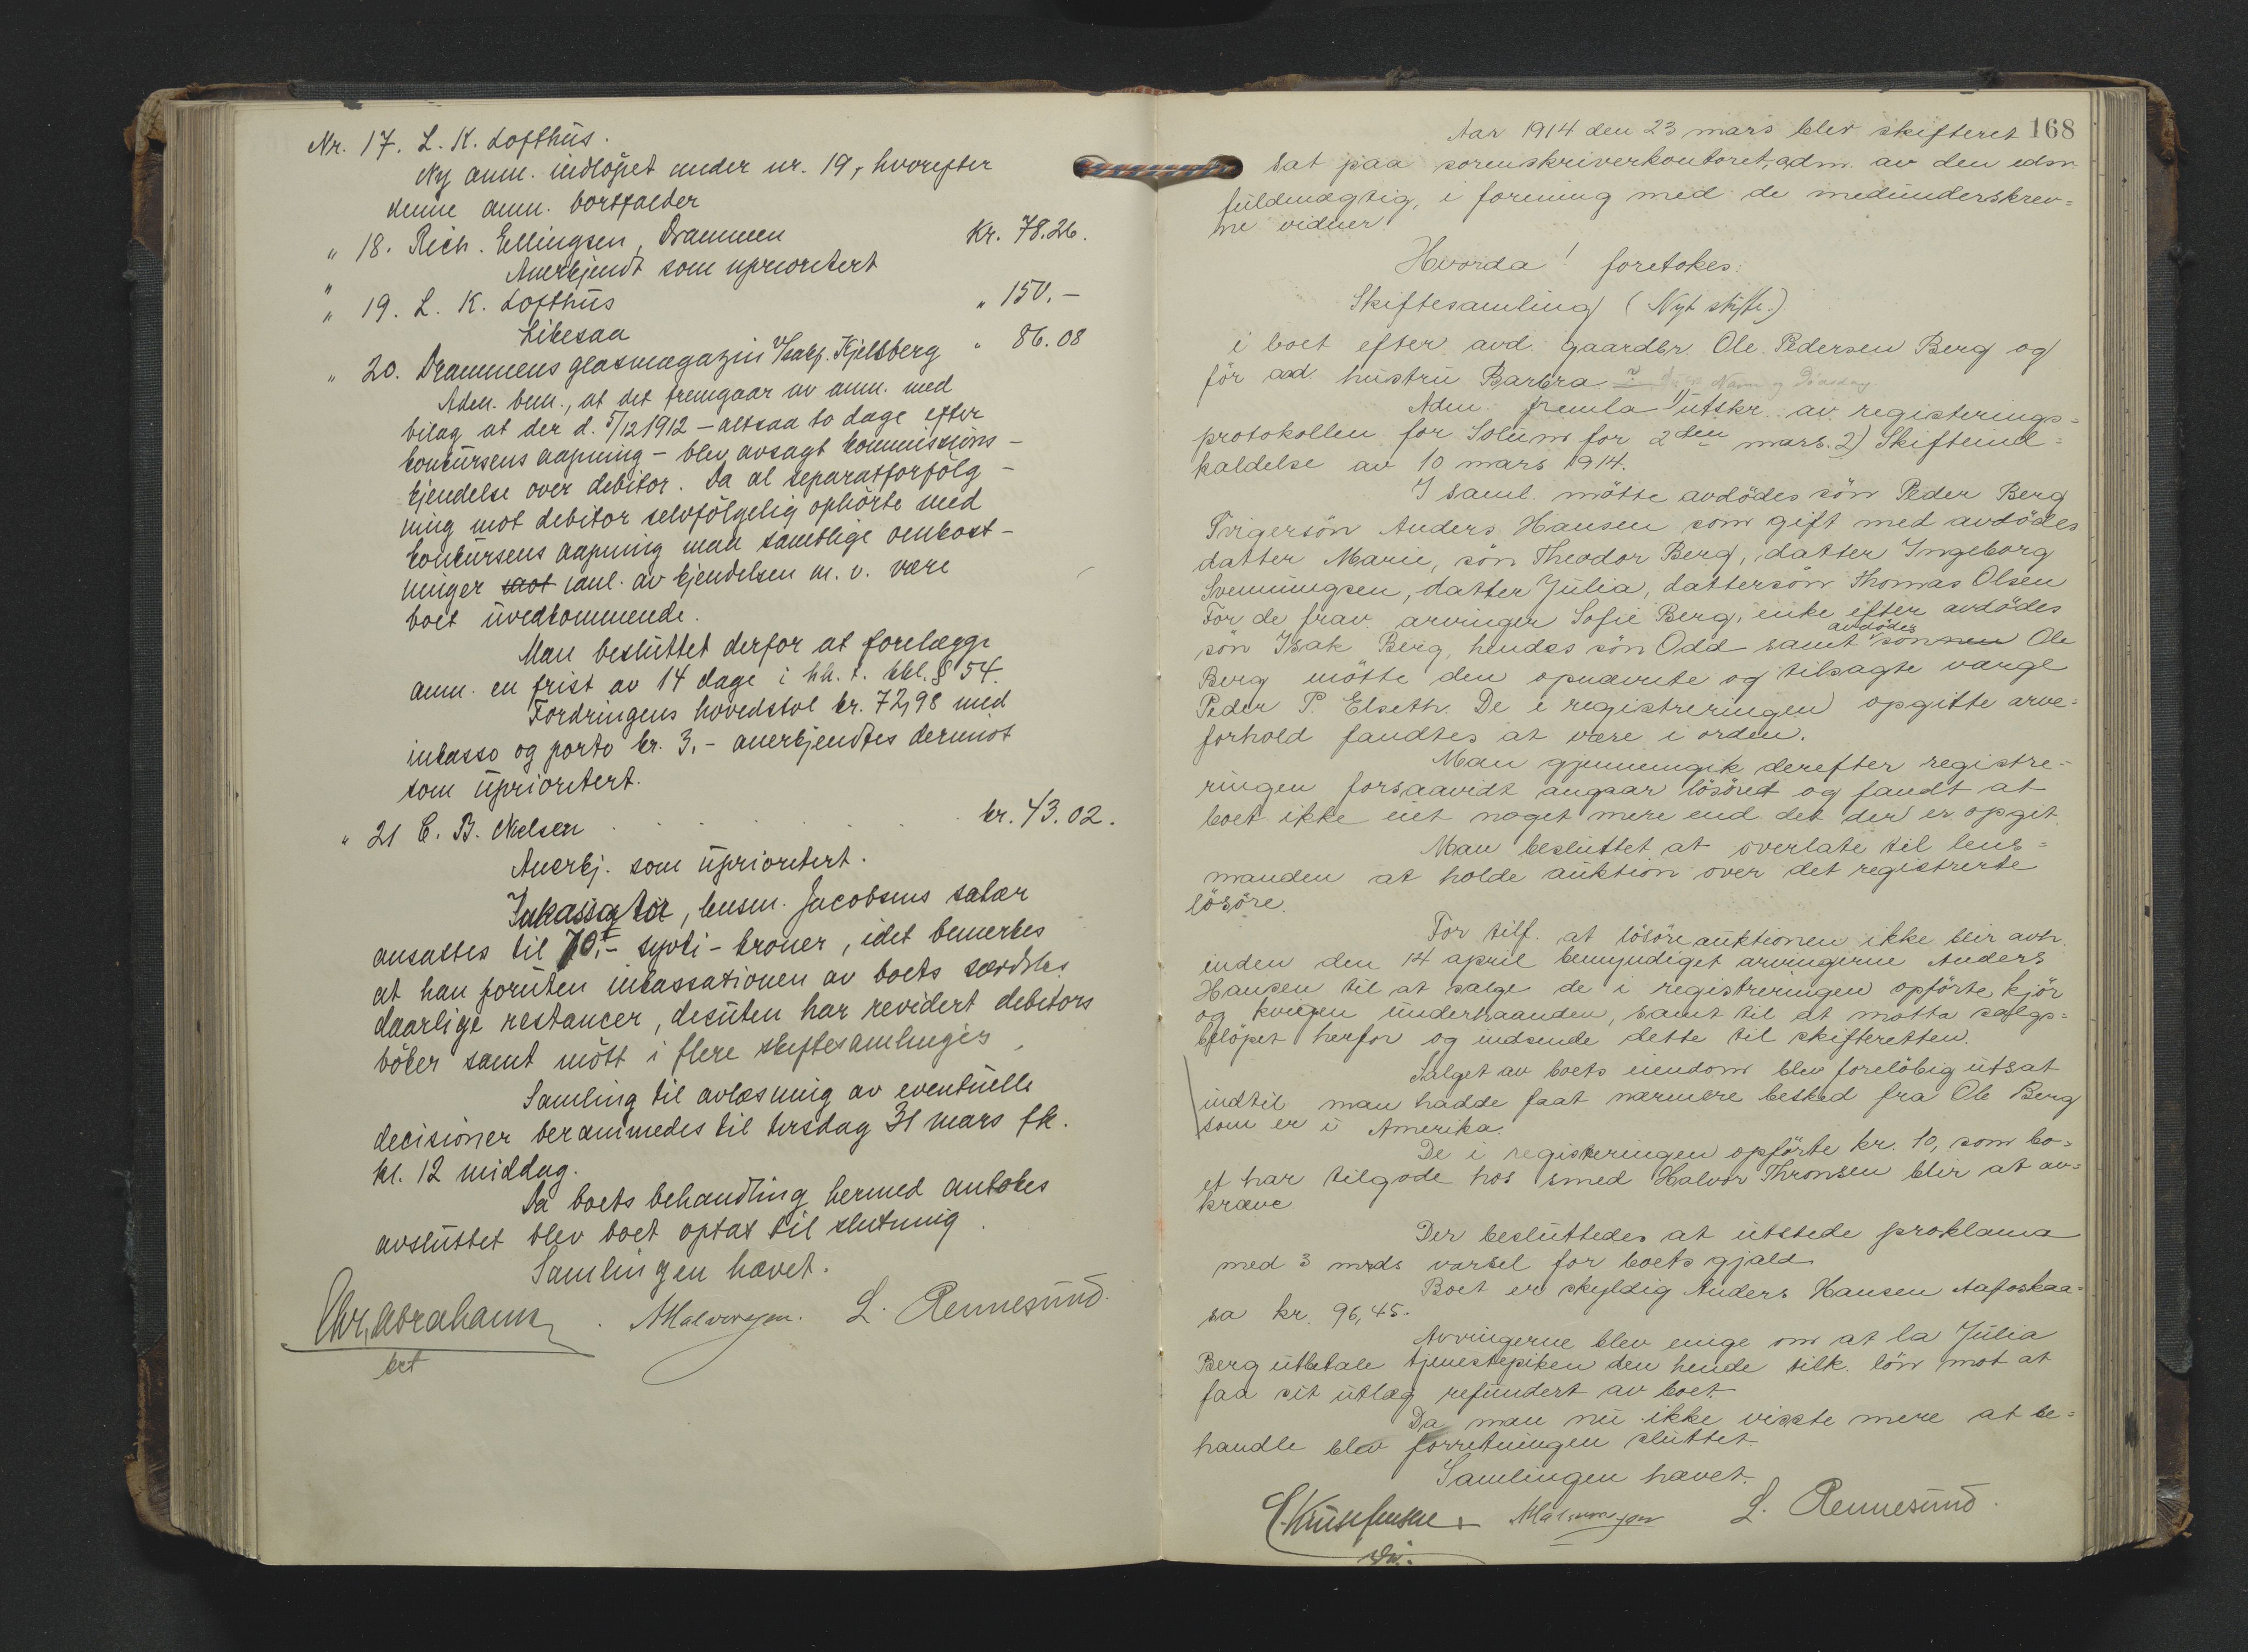 Nr. 17. L. K. Lofthus.
Ny anm. indløpet under nr. 19, hvorefter
denne anm. bortfalder
" 18. Rich. Ellingsen, Drammen Kr. 78.26.
Anerkjendt som uprioritert
" 19. L. K. Lofthus " 150.-
Likesaa
" 20. Drammens glasmagazin Kjeldsberg " 86.08
Adm. bem., at det fremgaar av anm. med
bilag at der d. 5/12 1912 – altsaa to dage efter
konkursens aapning – blev avsagt kommissions-
kjendelse over debitor. Da al separatforfølg-
ning mot debitor selvfølgelig ophørte med
konkursens aapning maa samtlige omkost-
ninger av kjendelsen m. v. være
boet uvedkommende.
Man besluttet derfor at forelægge
anm. en frist av 14 dage i hh. t. kkl. § 54.
Fordringens hovedstol kr. 72,98 med
inkasso og porto kr. 3.- anerkjendtes derimot
som uprioritert.
" 21 C. B. Nielsen kr. 43.02.
Anerkj. som uprioritert.
Inkassator, lensm. Jacobsens salær
ansattes til 70.- sytti- kroner, idet bemerkes
at han foruten inkassationen av boets særdeles
daarlige restancer, desuten har revidert debitors
bøker samt møtt i flere skiftesamlinger.
Samling til avlæsning av eventuelle
decisioner berammedes til tirsdag 31 mars fk.
kl. 12 middag.
Da boets behandling hermed antokes
avsluttet blev boet optat til slutning.
Samlingen hævet.
Chr. Abrahams. Halvorsen. L. Rennesund.
bet
168
Aar 1914 den 23 mars blev skifteret
sat paa sorenskriverkontoret, adm. av den edsv.
fuldmægtig, i forening med de medunderskrev=
ne vidner.
Hvorda! foretokes:
Skiftesamling (Nyt skifte.)
i boet efter avd. gaardbr. Ole Pedersen Berg og
før avd. hustru Barbra Navn og Dødsdag
Adm. fremla 1) utskr. av registrerings=
protokollen for Solum for 2den mars. 2) Skifteind=
kaldelse av 10 mars 1914.
I saml. møtte avdødes søn Peder Berg
Svigersøn Anders Hansen som gift med avdødes
datter Marie, søn Theodor Berg, datter Ingeborg
Svenningsen, datter Julia, dattersøn Thomas Olsen
For de frav. arvinger Sofie Berg, enke efter avdødes
søn Isak Berg, hendes søn Odd samt avdødes sønnen Ole
Berg møtte den opnævnte og tilsagte værge
Peder P. Elseth. De i registreringen opgitte arve=
forhold fandtes at være i orden.
Man gjennemgik derefter registre-
ringen forsaavidt angaar løsøret og fandt at
boet ikke eiet noget mere end det der er opgit.
Man besluttet at overlate til lens=
manden at holde auktion over det registrerte
løsøre.
For tilf. at løsøreauktionen ikke blir avh.
inden den 14 april bemyndiget arvingerne Anders
Hansen til at sælge de i registreringen opførte kjør
og kvigen underhaanden, samt til at motta salgs=
beløpet herfor og indsende dette til skifteretten.
Salget av boets eiendom blev foreløbig utsat
indtil man hadde faat nærmere besked fra Ole Berg
som er i Amerika.
De i registreringen opførte kr. 10, som bo=
et har tilgode hos smed Halvor Thronsen blir at av=
kræve
Der besluttedes at utstede proklama
med 3 mnds varsel for boets gjæld.
Boet er skyldig Anders Hansen Aafoskaa=
sa kr. 96,45.
Arvingerne blev enige om at la Julia
Berg utbetale tjenestepiken den hende tilk. løn mot at
faa sit utlæg refundert av boet.
Da man nu ikke visste mere at be=
handle blev forretningen sluttet.
Samlingen hævet.
Halvorsen L. Rennesund.